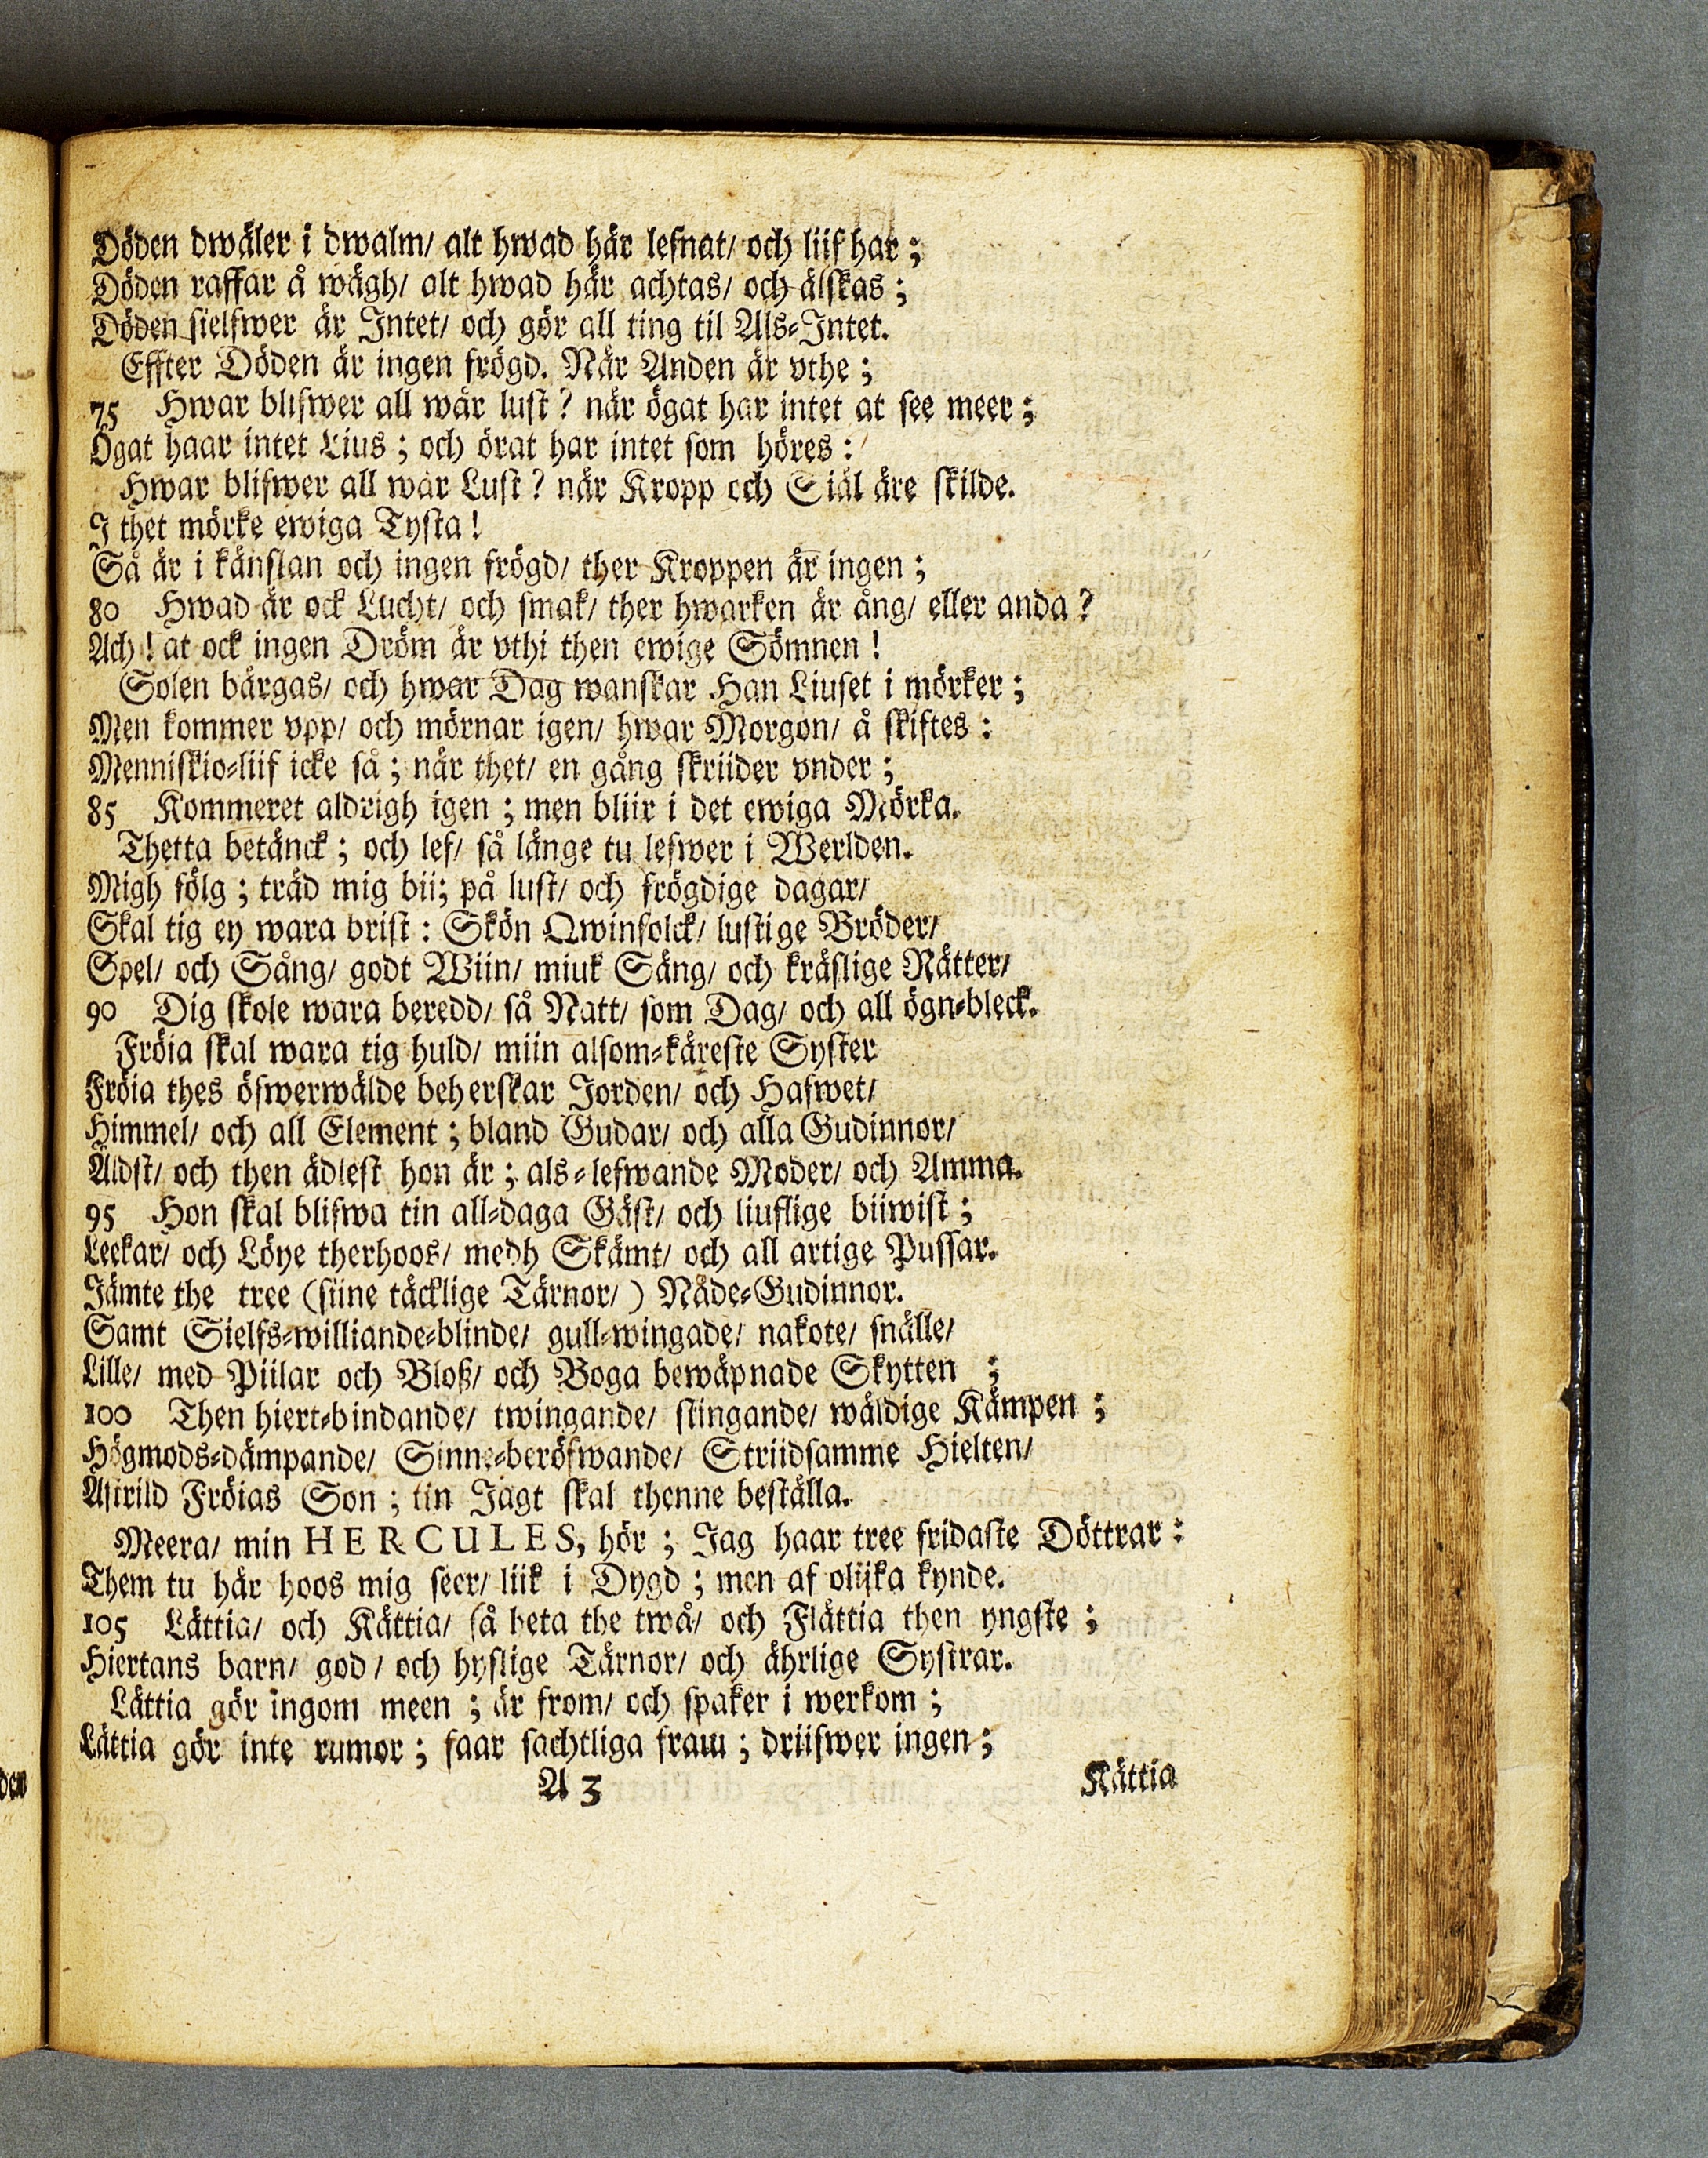 Döden dwäler i dwalm/ alt hwad här lefnat/ och liif har ;
Döden raffar å wägh/ alt hwad här achtas/ och älskas ;
Döden sielfwer är Intet/ och gör all ting til Als-Intet.
Effter Döden är ingen frögd. När Anden är vthe ;
75 Hwar blifwer all wår lust ? når ögat har intet at see meer ;
Ögat haar intet Lius ; och örat har intet som höres :
Hwar blifwer all wår Lust ? när Kropp och Siäl äre skilde.
I thet mörke ewiga Tysta !
Så är i känslan och ingen frögd/ ther Kroppen är ingen ;
80 Hwad är ock Lucht/ och smak/ ther hwarken är ång/ eller anda ?
Ach ! at ock ingen Dröm är vthi then ewige Sömnen !
Solen bärgas/ och hwar Dag wanskar Han Liuset i mörker ;
Men kommer vpp/ och mörnar igen/ hwar Morgon/ å skiftes :
Menniskio-liif icke så ; när thet/ en gång skriider vnder ;
85 Kommeret aldrigh igen ; men bliir i det ewiga Mörka.
Thetta betänck ; och lef/ så länge tu lefwer i Werlden.
Migh fölg ; träd mig bii; på lust/ och frögdige dagar/
Skal tig ey wara brist : Skön Qwinfolck/ lustige Bröder/
Spel/ och Sång/ godt Wiin/ miuk Säng/ och kräslige Rätter/
90 Dig skole wara beredd/ så Natt/ som Dag/ och all ögn-bleck.
Fröia skal wara tig huld/ miin alsom-käreste Syster
Fröia thes öfwerwälde beherskar Jorden/ och Hafwet/
Himmel/ och all Element ; bland Gudar/ och alla Gudinnor/
Äldst/ och then ädlest hon är ; als-lefwande Moder/ och Amma.
95 Hon skal blifwa tin all-daga Gäst/ och liuflige biiwist ;
Leekar/ och Löye therhoos/ medh Skämt/ och all artige Pussar.
Jämte the tree (siine täcklige Tärnor/ ) Nåde-Gudinnor.
Samt Sielfs-williande-blinde/ gull-wingade/ nakote/ snälle/
Lille/ med Piilar och Bloß/ och Boga bewäpnade Skytten ;
100 Then hiert-bindande/ twingande/ stingande/ wäldige Kämpen ;
Högmods-dämpande/ Sinne-beröfwande/ Striidsamme Hielten/
Astrild Fröias Son ; tin Jagt skal thenne beställa.
Meera/ min HERCULES, hör ; Jag haar tree fridaste Döttrar :
Them tu här hoos mig seer/ liik i Dygd ; men af olijka kynde.
105 Lättia/ och Kättia/ så heta the twå/ och Flättia then yngste ;
Hiertans barn/ god/ och hyslige Tärnor/ och ährlige Systrar.
Lättia gör ingom meen ; är from/ och spaker i werkom ;
Lättia gör inte rumor ; faar sachtliga fram ; driifwer ingen ;
A 3 Kättia
den